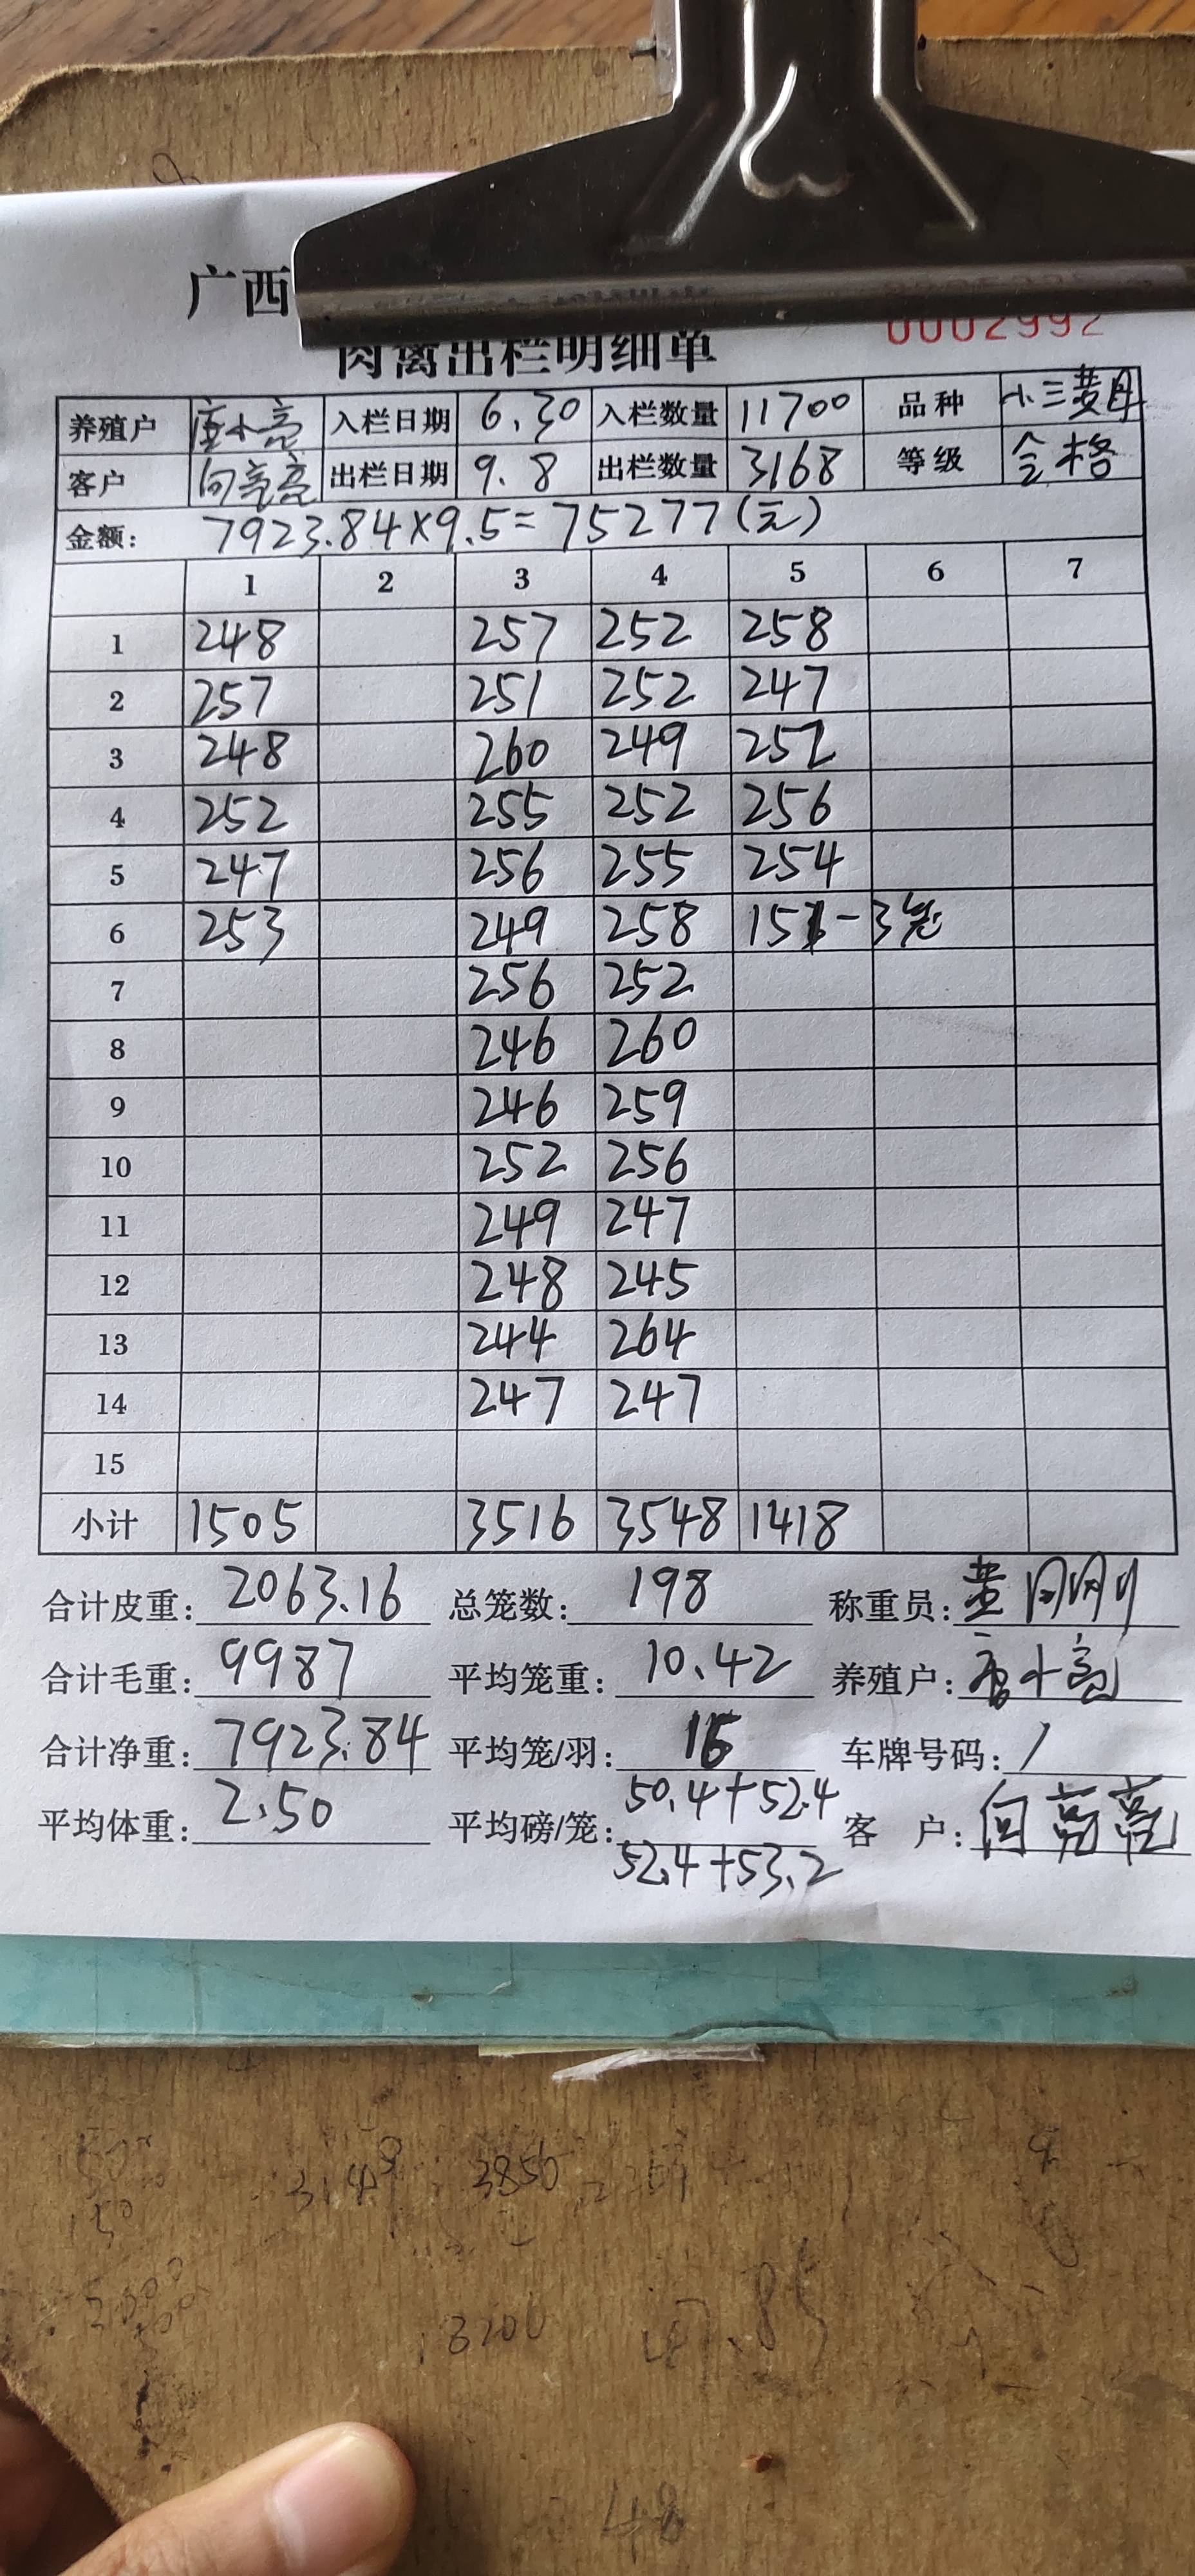 广西
0002992
肉禽出栏明细单
养殖户 唐小亮 入栏日期 6.30 入栏数量 11700 品种 小三黄母
客户 向亮亮 出栏日期 9.8 出栏数量 3168 等级 合格
金额: 7923.84×9.5=75277(元)
1 2 3 4 5 6 7
1 248 257 252 258
2 257 251 252 247
3 248 260 249 252
4 252 255 252 256
5 247 256 255 254
6 253 249 258 151-3笼
7 256 252
8 246 260
9 246 259
10 252 256
11 249 247
12 248 245
13 244 264
14 247 247
15
小计 1505 3516 3548 1418
合计皮重: 2063.16 总笼数: 198 称重员: 黄刚刚
合计毛重: 9987 平均笼重: 10.42 养殖户: 唐小亮
合计净重: 7923.84 平均笼/羽: 16 车牌号码: /
平均体重: 2.50 平均磅/笼: 50.4+52.4 客 户: 向亮亮
52.4+53.2
3850
3200
48